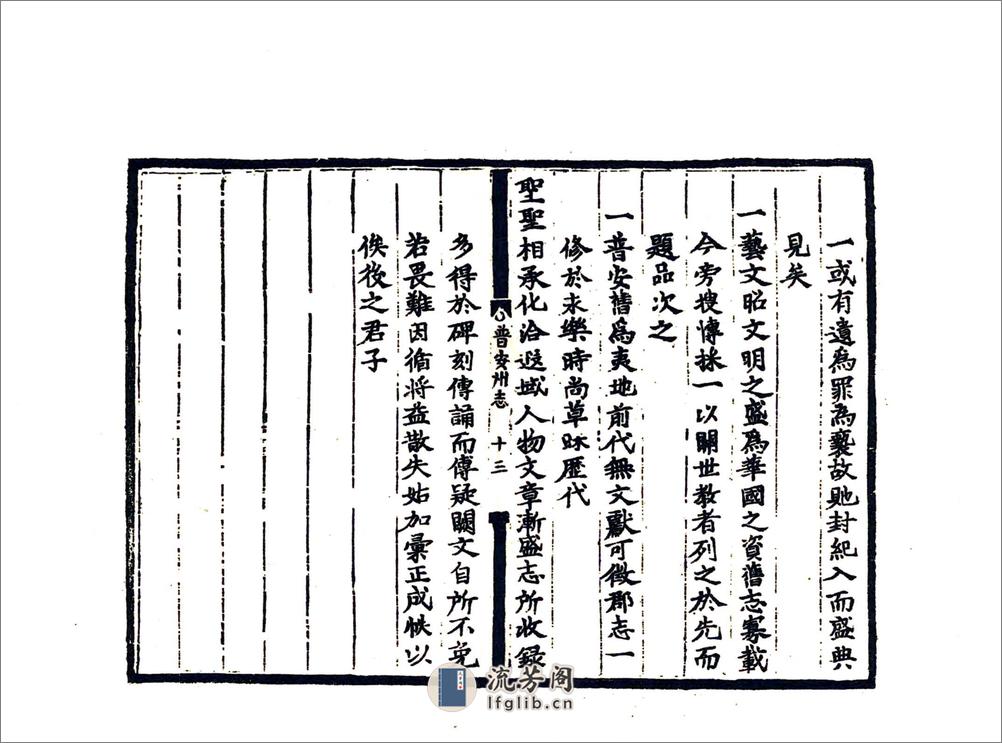 一或有遺為罪為褻故貤封紀入而盛典
見矣
一藝文昭文明之盛為華國之資舊志寡載
今旁搜博採一以關世教者列之於先而
題品次之
一普安舊為夷地前代無文獻可徵郡志一
修於永樂時尚草昧歷代
聖聖相承化洽遐域人物文章漸盛志所收錄
普安州志 十三
多得於碑刻傳誦而傳疑闕文自所不免
若畏難因循將益散失姑加彙正成帙以
俟後之君子
流芳阁
lfglib.cn